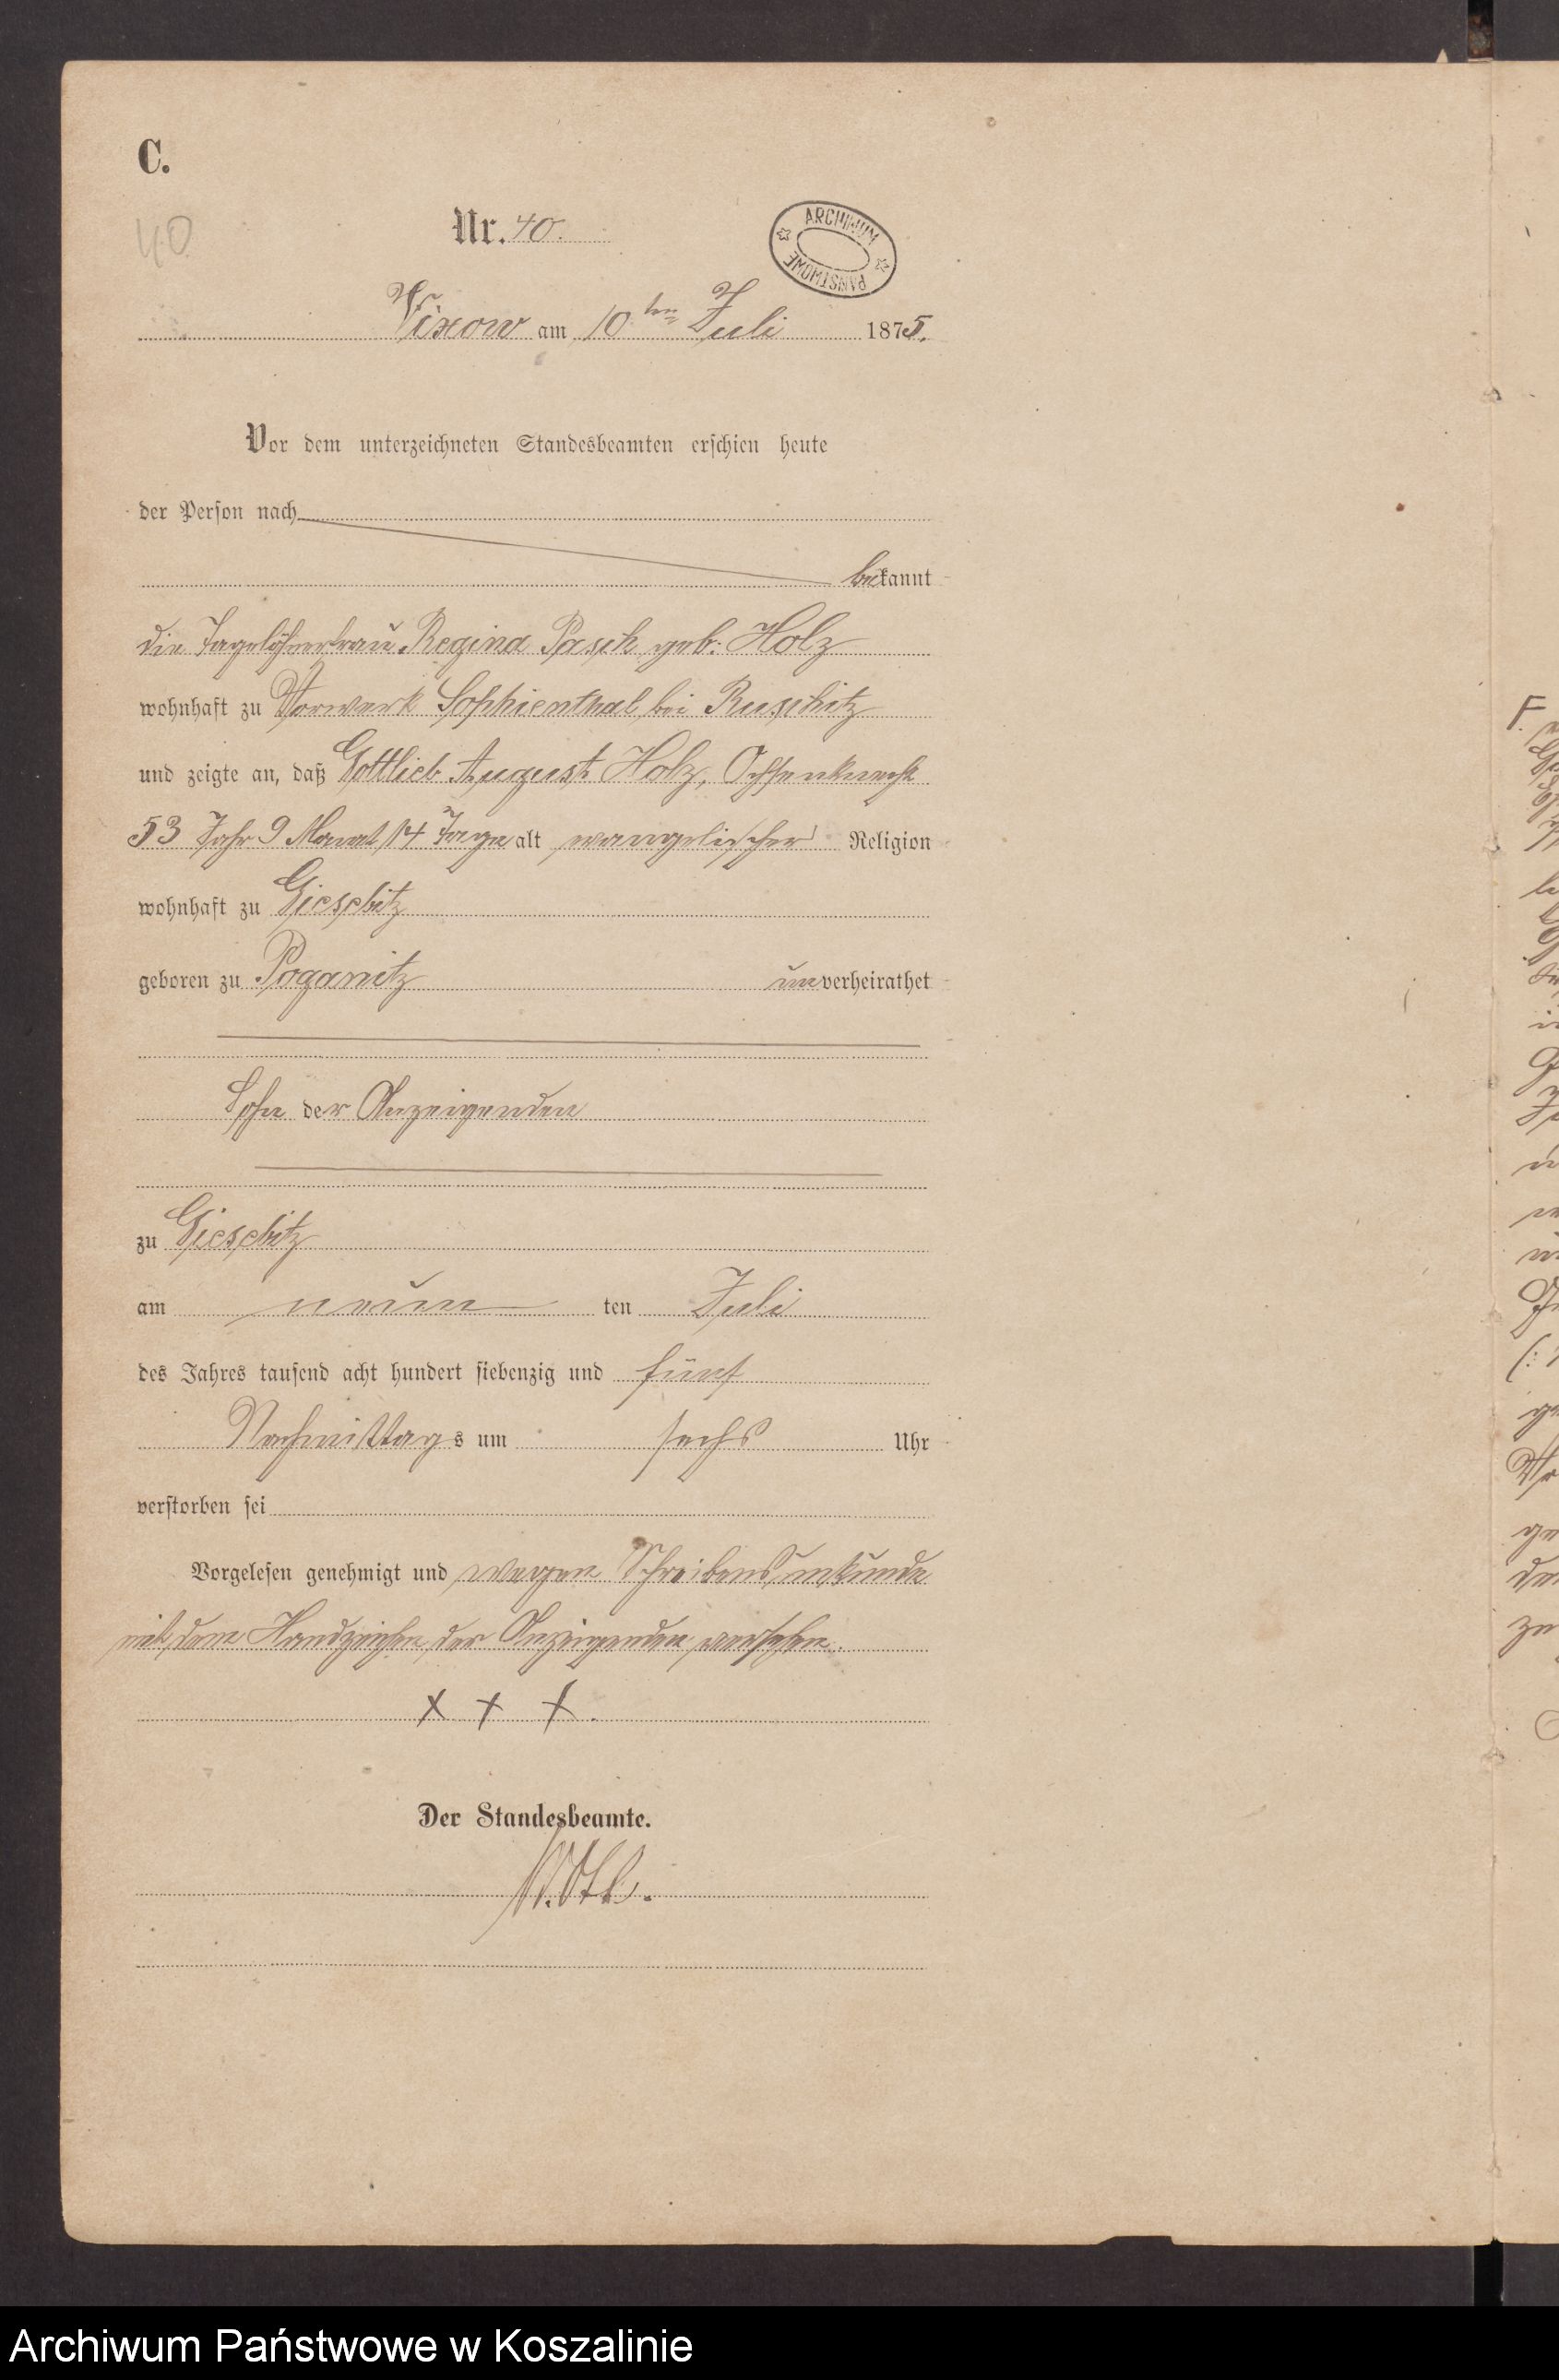 C.
40
Nr. 40.
ARCHIWUM PAŃSTWOWE
Vixow am 10ten Juli 1875.
Vor dem unterzeichneten Standesbeamten erschien heute
der Person nach
bekannt
die Tagelöhnerfrau Regina Pasch geb: Holz
wohnhaft zu Vorwerk Sophienthal bei Ruschitz
und zeigte an, daß Gottlieb August Holz, Ochsenknecht
53 Jahr 9 Monat 14 Tage alt evangelischer Religion
wohnhaft zu Giesebitz
geboren zu Poganitz unverheirathet
Sohn der Anzeigenden
zu Giesebitz
am neun ten Juli
des Jahres tausend acht hundert siebenzig und fünf
Nachmittags um sechs Uhr
verstorben sei
Vorgelesen genehmigt und wegen Schreibensunkunde
mit dem Handzeichen der Anzeigenden versehen.
x x x.
Der Standesbeamte.
Archiwum Państwowe w Koszalinie